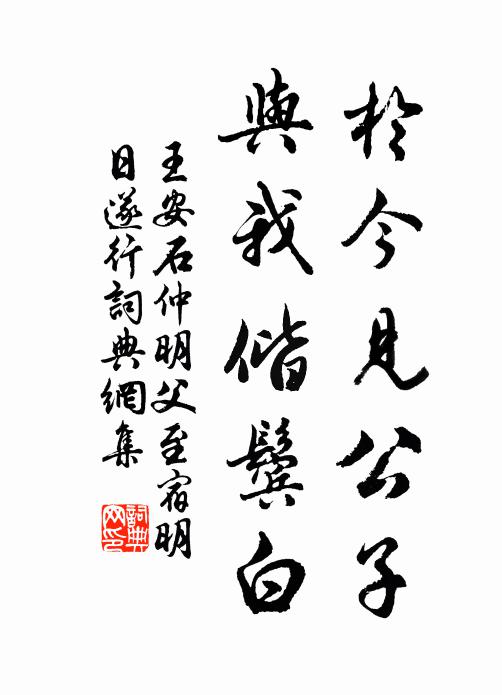 於今見公子
與我偕鬓白
王安石仲明父至宿明
日遂行詞典網集
詞典
网印